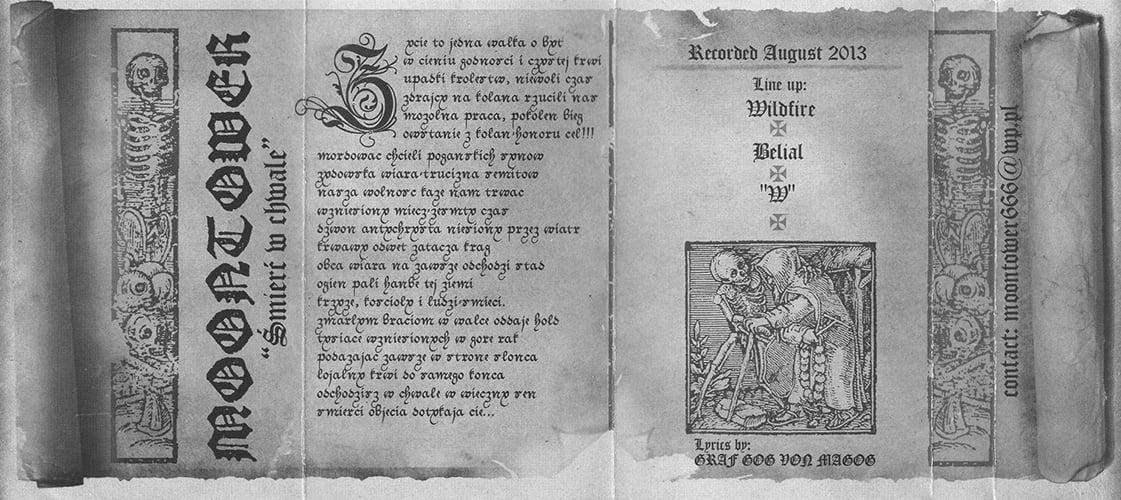 MOONTOWER
“Śmierć w chwale”
Zycie to jedna walka o byt
w cieniu godnosci i czystej krwi
upadki krolestw, niewoli czas
zdrajcy na kolana rzucili nas
mozolna praca, pokolen bieg
owstanie z kolan·honoru cel!!!
mordowac chcieli poganskich synow
zydowska wiara·trucizna semitow
nasza wolnosc kaze nam trwac
wzniesiony miecz·zesmty czas
dzwon antychrysta niesiony przez wiatr
krwawy odwet zatacza krag
obca wiara na zawsze odchodzi stad
ogien pali hanbe tej ziemi
krzyze, koscioly i ludzi·smieci.
zmarlym braciom w walce oddaje hold
tysiace wzniesionych w gore rak
podazajac zawsze w strone slonca
lojalny krwi do samego konca
odchodzisz w chwale w wieczny sen
smierci objecia dotykaja cie...
Recorded August 2013
Line up:
Wildfire
Belial
"W"
Lyrics by:
GRAF GOG VON MAGOG
contact: moontower666@wp.pl